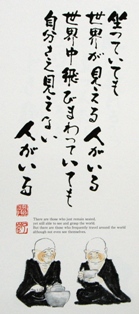 坐っていても
世界が見える人がいる
世界中飛びまわっていても
自分さえ見えない 人がいる
There are those who just remain seated,
yet still able to see and grasp the world.
But there are those who frequently travel around the world
although not even see themselves.